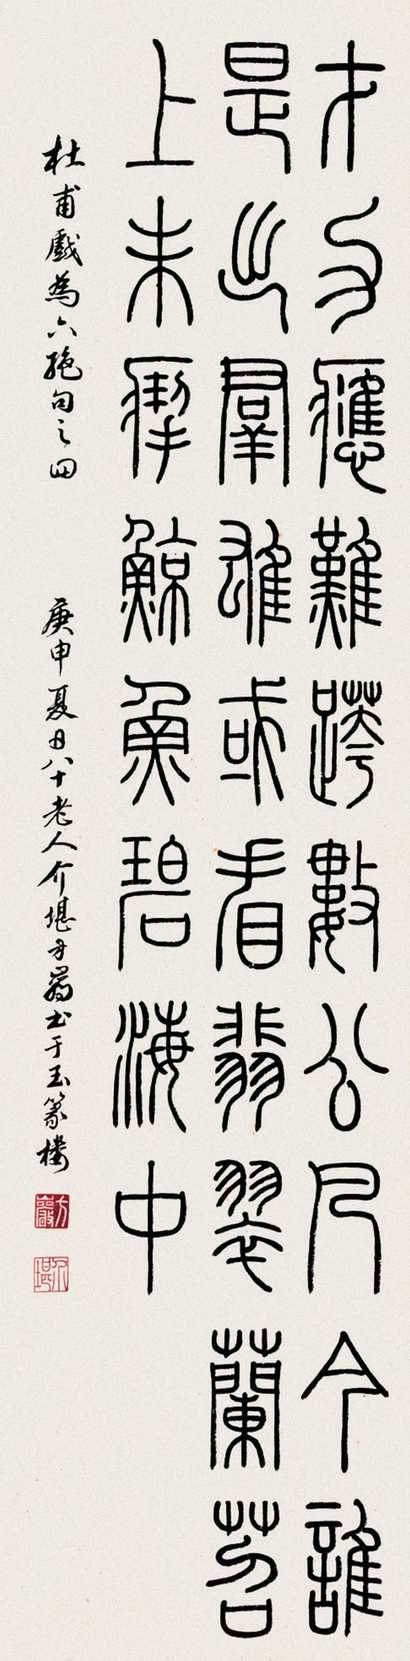 才力應難跨數公凡今誰
是出羣雄或看翡翠蘭苕
上未掣鯨魚碧海中
杜甫戲為六絕句之四
庚申夏日八十老人介堪方巖书于玉篆樓
方巖
介堪